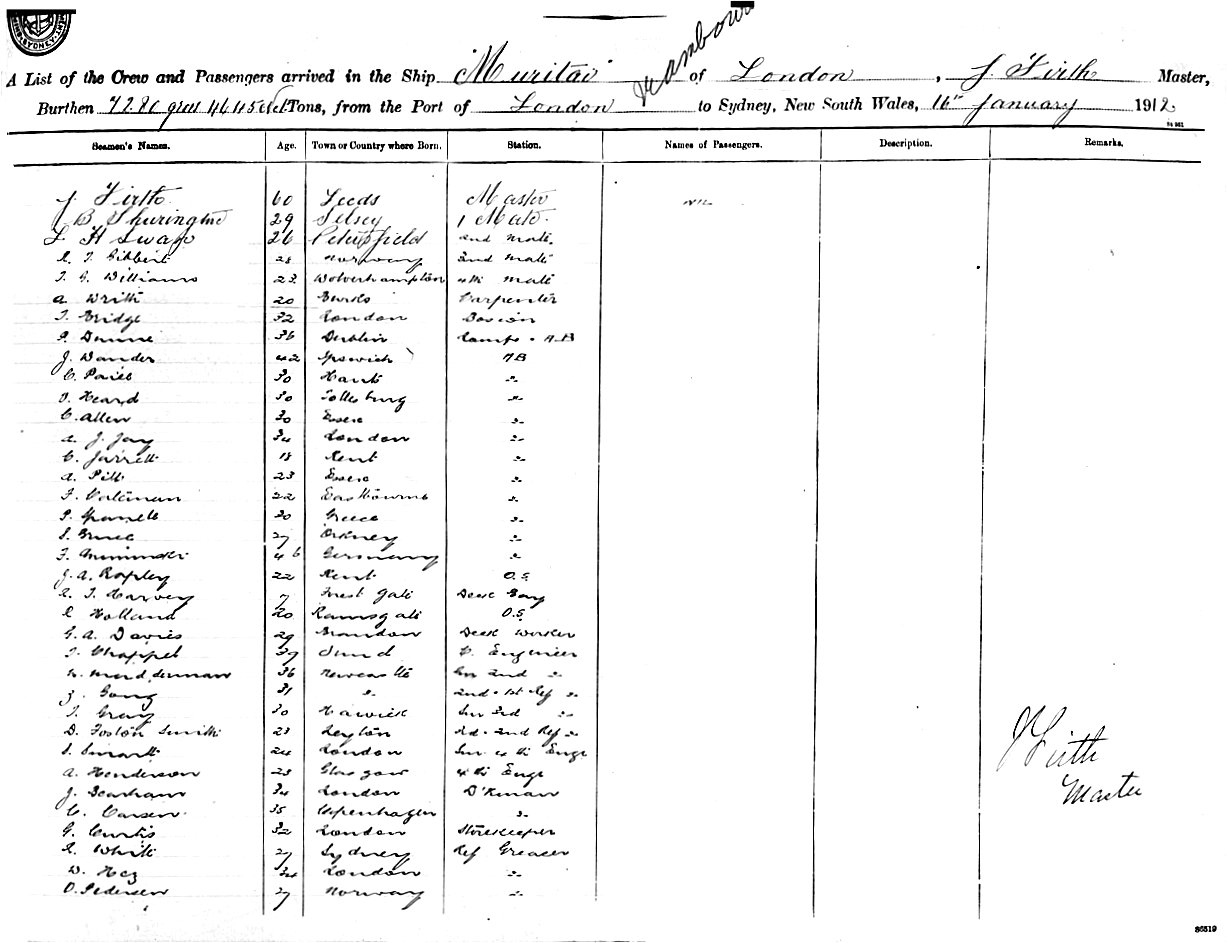 A List of the Crew and Passengers arrived in the Ship Muritai of London, J. Firth Master,
Burthen 7280 gross 4645 Tons, from the Port of London to Sydney, New South Wales, 16th January 1912
Seamen's Names. Age. Town or Country where Born. Station. Names of Passengers. Description. Remarks.
J. Firth 60 Leeds Master Nil
B 29 Selsey 1 Mate.
L H Swap 26 Petersfield 2nd Mate.
28 Norway 3rd Mate
T. G. Williams 23 Wolverhampton 4th Mate
a. 20 Carpenter
T. Bridge 32 London
P. Dunne 36 Dublin Lamps & AB
J. 42 Ipswich AB
C. 30 Hants "
O. Heard 30 "
C. Allen 30 Essex "
a. J. Jay 34 London "
C. Jarrett 18 Kent "
a. Pitt 23 Essex "
F. 22 Eastbourne "
P. 30 Greece "
S. Bruce 27 Orkney "
F. 46 Germany "
J. a. Rapley 22 Kent O.S.
T. Harvey Forest Gate Deck Boy
Holland 20 Ramsgate O.S.
G. a. Davies 29 Brandon Deck Worker
T. Chappel 39 C. Engineer
36 Newcastle Snr 2nd "
Gong 31 " 2nd & 1st Ref "
T. Gray 30 Hawick Snr 3rd "
D. Foston Smith 23 Leyton 3rd & 2nd Ref "
S. Smart 24 London Snr 4th Engr
a. Henderson 23 Glasgow 4th Engr
J. Bearham 34 London D'Kman
C. Carsen 35 Copenhagen "
G. Curtis 32 London Storekeeper
White 27 Sydney Ref Greaser
W. 34 London "
O. Pedersen 27 Norway "
J Firth
Master
86519